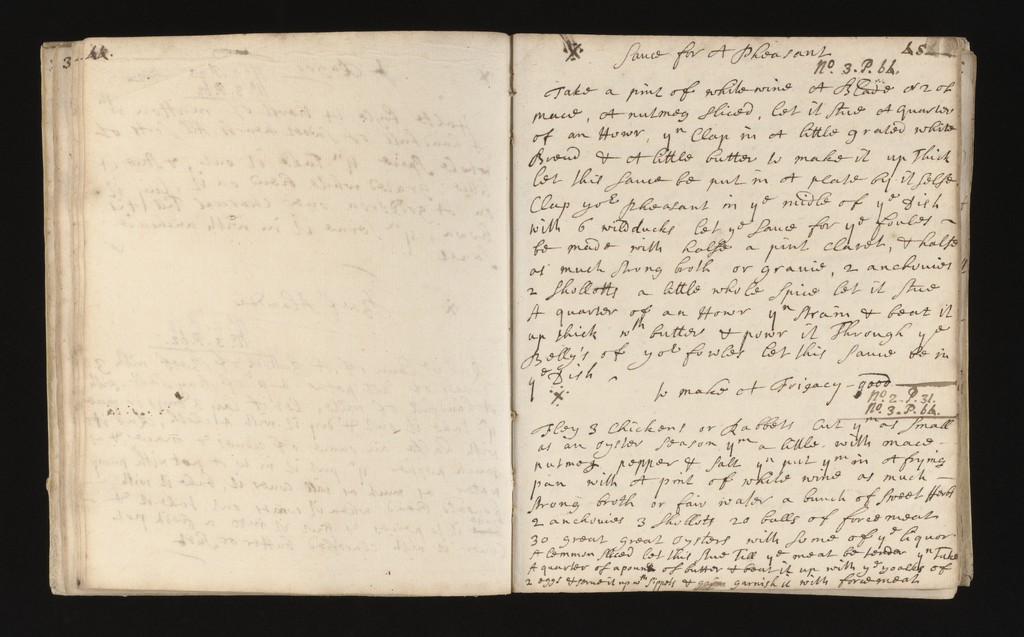 3
44.
45
Sauce for A Pheasant
No. 3. P. 64.
Take a pint of white wine A Blade or 2 of
mace, A nutmeg sliced, let it stue A quarter
of an Hower, yn Clap in A little grated white
Bread & A little butter to make it up Thick
let this sauce be put in A plate by it selfe
Clap yor pheasant in ye midle of ye Dish
with 6 wildducks let ye sauce for ye foules
be made with halfe a pint Claret, & halfe
as much strong broth or gravie, 2 anchovies
2 shollotts a little whole spice let it stue
A quarter of an Hower yn strain & beat it
up thick wth butter & power it Through ye
Belly's of yor fowles let this sauce be in
ye Dish
to make A Frigacy - good
No. 2. P. 31.
No. 3. P. 64.
Fley 3 Chickens or Rabbets Cut ym as small
as an oyster season ym a little with mace
nutmeg pepper & salt yn put ym in A frying
pan with A pint of white wine as much
strong broth or fair water a bunch of sweet Herbs
2 anchovies 3 shollots 20 balls of forcemeat
30 great great oysters with some of ye liquor
A Lemmon sliced let this stue Till ye meat be tender yn Take
A quarter of a pound of butter & beat it up with ye yoalks of
2 eggs & serve it up wth sippets & garnish it with forcemeat